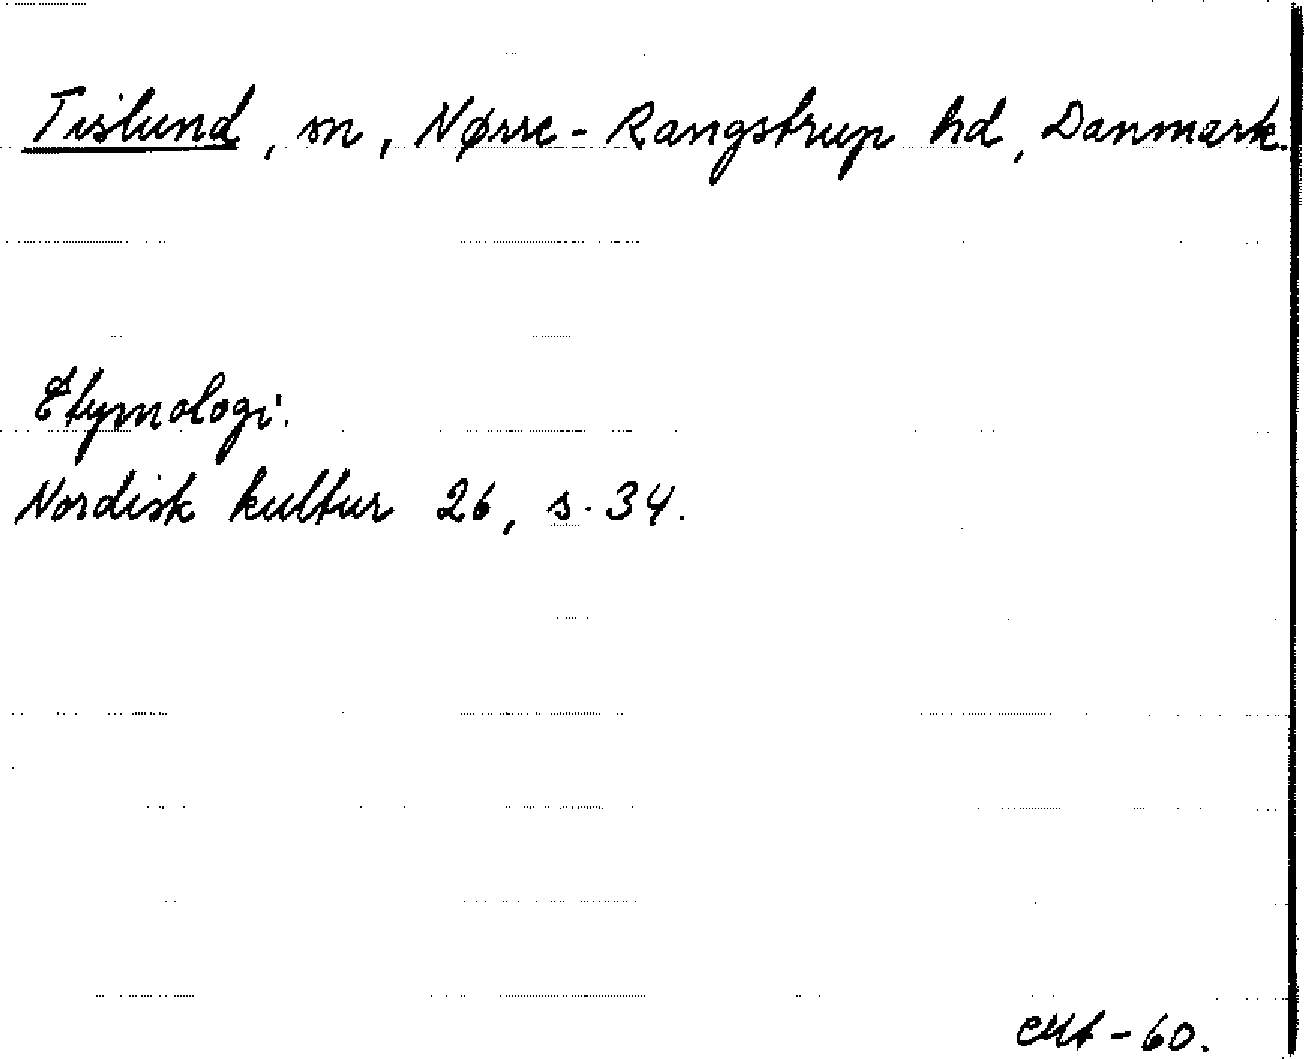 Tislund, sn, Nørre-Rangstrup hd, Danmark.
Etymologi.
Nordisk kultur 26, s. 34.
-60.